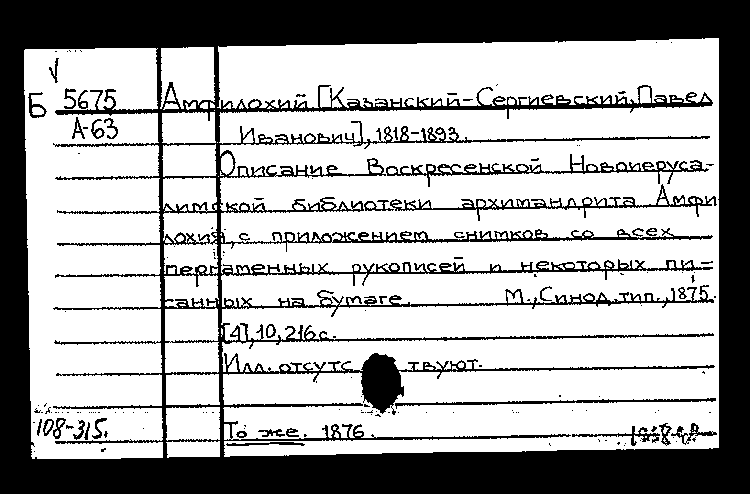 √
Б 5675 Амфилохий [Казанский-Сергиевский, Павел
А-63 Иванович], 1818-1893.
Описание Воскресенской Новоиеруса-
лимской библиотеки архимандрита Амфи
лохия, с приложением снимков со всех
пергаменных рукописей и некоторых пи-
санных на бумаге. М., Синод. тип., 1875.
[4], 10, 216 с.
Илл. отсутствуют.
108-315. То же. 1876.